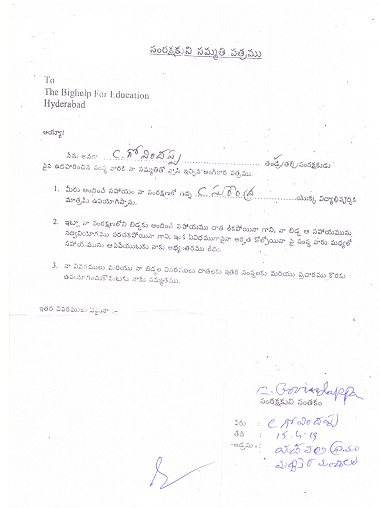 సంరక్షకుని సమ్మతి పత్రము
To
The Bighelp For Education
Hyderabad
అయ్యా!
నేను అనగా C. గోవిందప్ప తండ్రి/తల్లి/సంరక్షకుడు
పైన ఉదహరించిన సంస్థ వారికి నా సమ్మతితో వ్రాసి ఇచ్చిన అంగీకార పత్రము.
1. మీరు అందించే సహాయం నా సంరక్షణలో ఉన్న C. సురేంద్ర యొక్క విద్యాభివృద్ధికి
మాత్రమే ఉపయోగిస్తాను.
2. ఇట్లా నా సంరక్షణలోని బిడ్డకు అందించే సహాయము దాత లేకపోయినా గాని, నా బిడ్డ ఆ సహాయమును
సద్వినియోగము పరచకపోయినా గాని, ఇంక ఏవిధముగానైనా అర్హత కోల్పోయినా పై సంస్థ వారు మధ్యలో
సహాయమును ఆపివేయుటకు నాకు అభ్యంతరము లేదు.
3. నా వివరములు మరియు నా బిడ్డల వివరములు దాతలకు ఇతర సంస్థలకు మరియు ప్రచారము కొరకు
ఉపయోగించుకొనుటకు నాకు సమ్మతము.
ఇతర వివరములు ఏమైనా :-
C. Govindappa
సంరక్షకుని సంతకం
పేరు : C గోవిందప్ప
తేది : 15-4-19
అడ్రసు : గ్రామం
మండలం